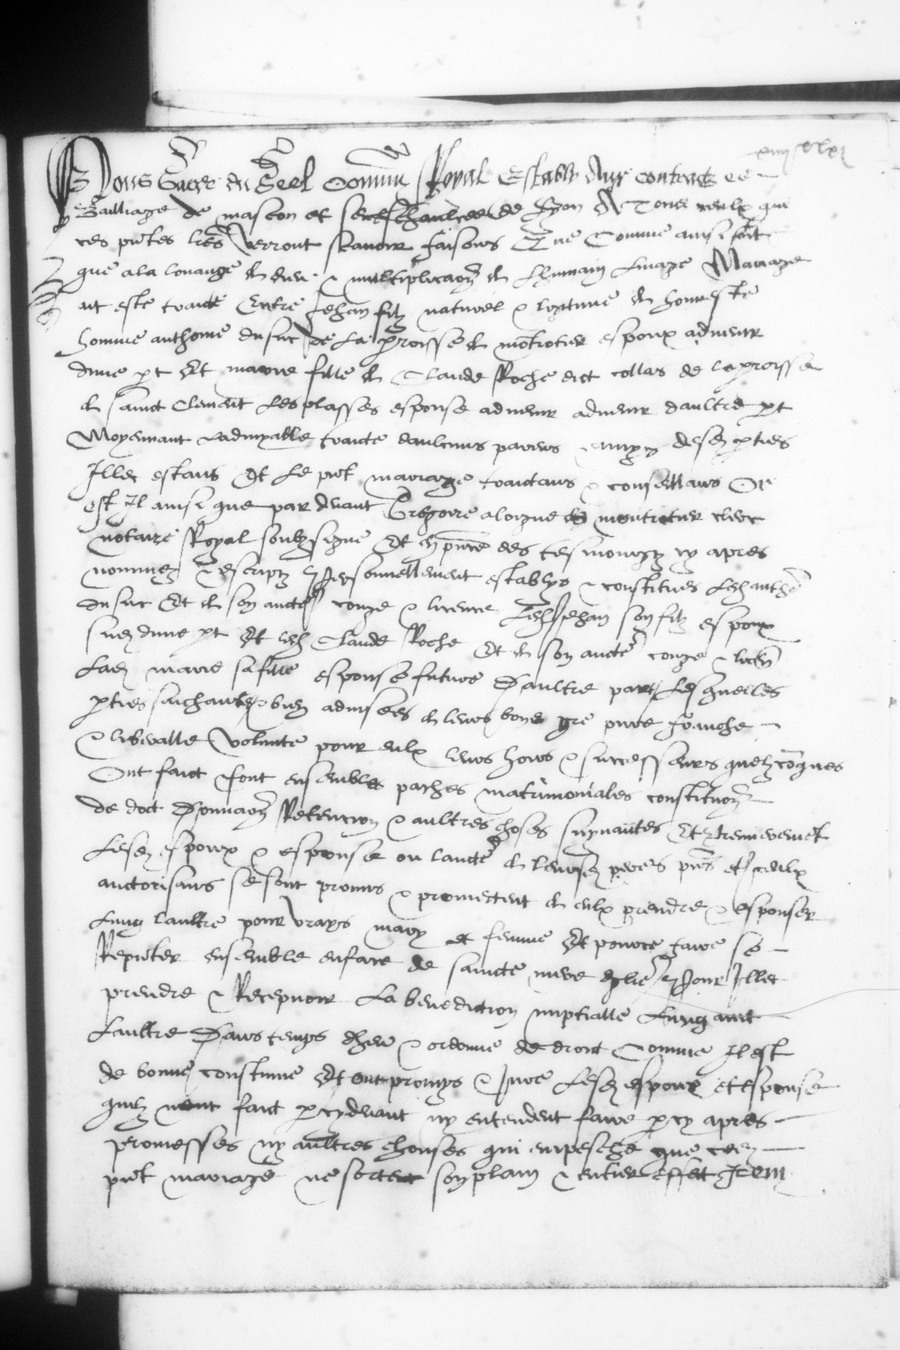 Nous Garde du Seel Commun Royal Estably Aux contractz es
Bailliage de mascon et seneschaulcee de Lyon A Tous ceulx qui
ces pntes lres Verront scavoir faisons Que Comme ainsi soit
que a la louange de dieu & multiplicaon de Lhumain Linage Mariage
ait este traicte Entre Jehan filz naturel & legitime de honneste
homme anthoine du suc de La proisse de montrotier espoux advenir
dune pt Et marie fille de Claude Roche dict collas de la proisse
de sainct Clement Les plasses espouse advenir daultre pt
Moyennant Ladmyable traicte daulcuns parens amys desd pties
Illec estans Et Le pnt mariage traictans & conseillans Or
est Il ainsi que par devant Gregoire de montrotier clerc
notaire Royal soubzsigne Et en pnce des tesmoingz cy apres
nommez & escriptz personnellement establys & constitues Led anthe
du suc Et de son aucte conge & licence Led Jehan son filz espoux
dune pt Et led Claude Roche Et de son aucte conge & licen
Lad marie sa fille espouse future Daultre part Lesquelles
pties saichants & bien advisees de leurs bons gre pure franche
& liberalle Volunte pour eulx leurs hoirs & successeurs quelzcoques
Ont faict & font ensembles paches matrimoniales constituon
de dot Donnaon Retencion & aultres choses suyvantes Et premierement
Lesd espoux & espouse ou laucte de leursd peres pns et iceulx
auctorisans se sont promis & promectent de eulx prendre & espouser
Lung laultre pour vrays mary et femme Et pource faire se
Repnter ensemble en face de saincte mere eglise pour Illec
prendre & Recepvoir La benediction nuptialle Lung avec
Laultre Dans temps deheu & ordonne de droit Comme Il est
de bonne coustume Et ont promys & Jure Lesd espoux et espouse
quilz nont faict p cy devant ny entendent faire p cy apres
promesses ny aultres chouses qui empesche que ced
pnt mariage ne sortent son plain & entier effect Item